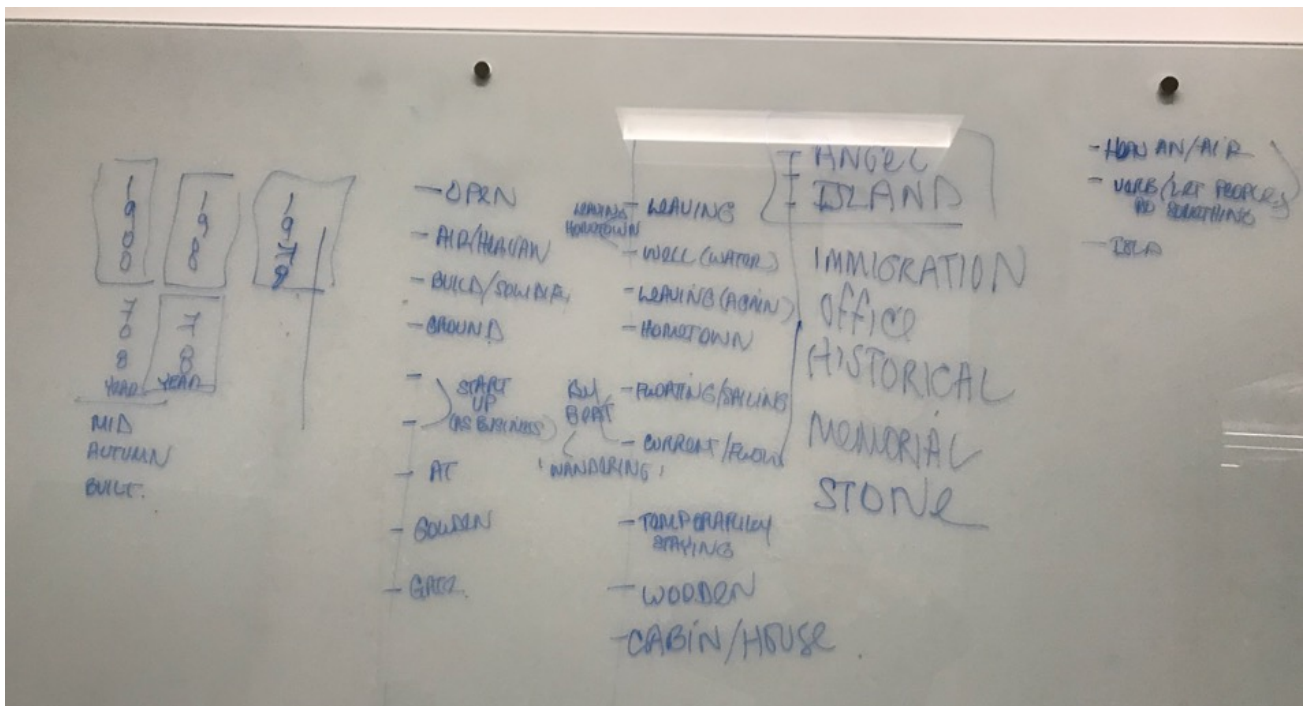 1
9
0
0
7
0
8
YEAR
MID
AUTUMN
BUILT.
1
9
8
7
8
YEAR
1
9
7
9
- OPEN
- AIR/HEAVEN
- BUILD/
- GROUND
-
START
UP
(AS BUSINESS)
-
- AT
- GOLDEN
- GATE.
LEAVING
HOMETOWN
- LEAVING
- WELL (WATER)
- LEAVING (AGAIN)
- HOMETOWN
BY
BOAT
- FLOATING/SAILING
- CURRENT/FLOW
'WANDERING'
- TEMPORARILY
STAYING
- WOODEN
- CABIN/HOUSE.
ANGEL
ISLAND
IMMIGRATION
OFFICE
HISTORICAL
MEMORIAL
STONE
/AIR
- VERB (LET PEOPLE
DO SOMETHING